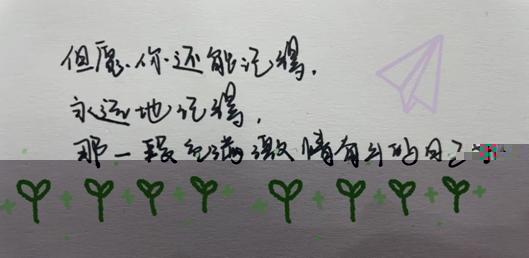 但愿你还能记得，
永远地记得，
那一段充满激情有斗的日